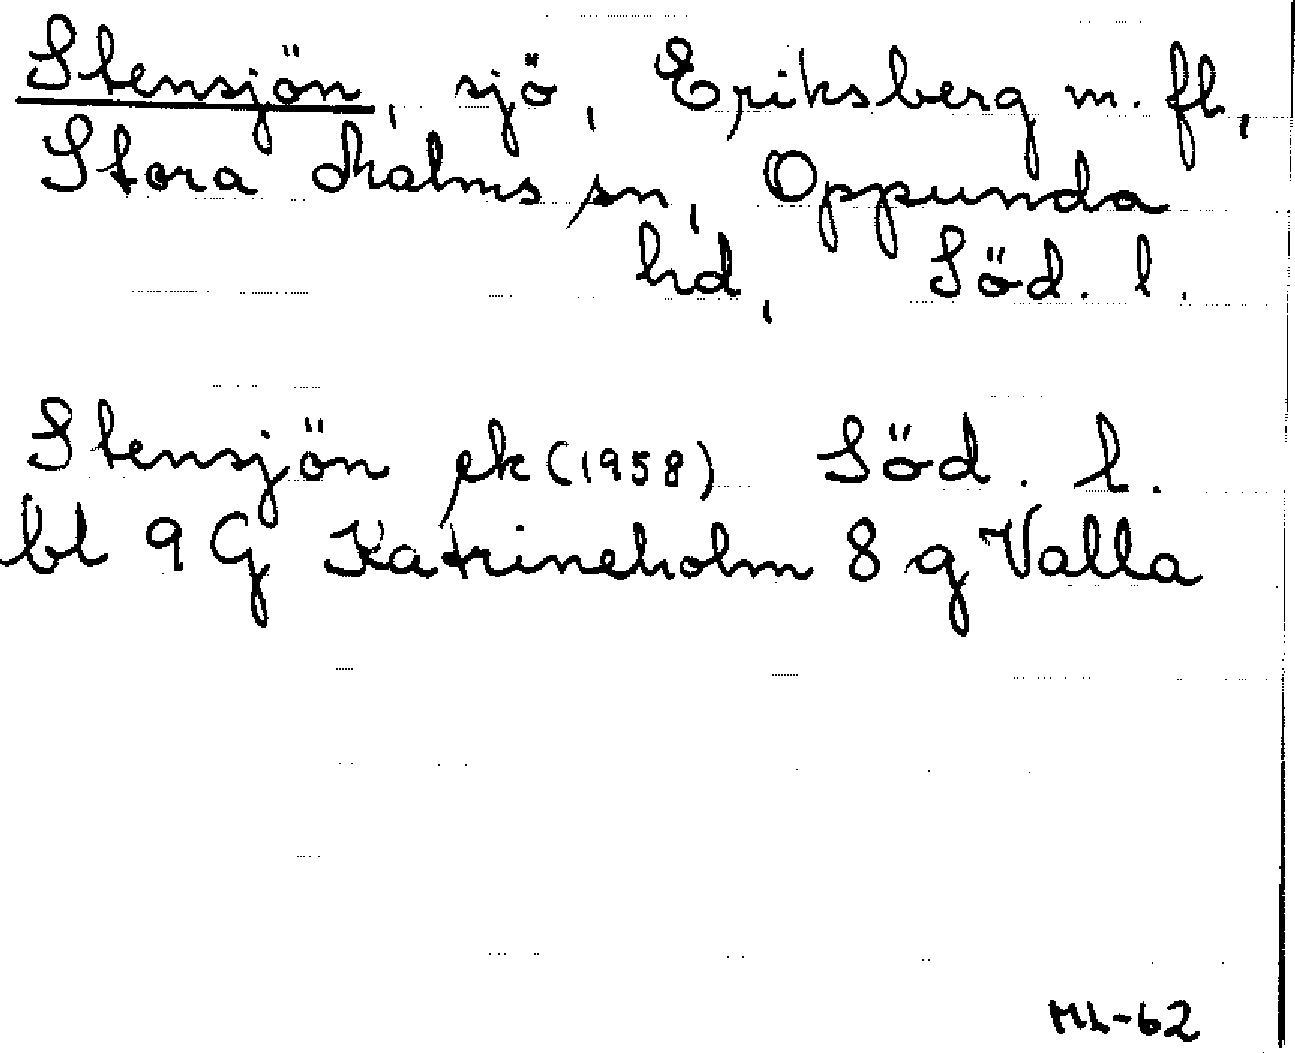 Stensjön, sjö, Eriksberg m. fl,
Stora Malms sn, Oppunda
hd, Söd. l.
Stensjön ek (1958) Söd. l.
bl 9 G Katrineholm 8 g Valla
ML-62